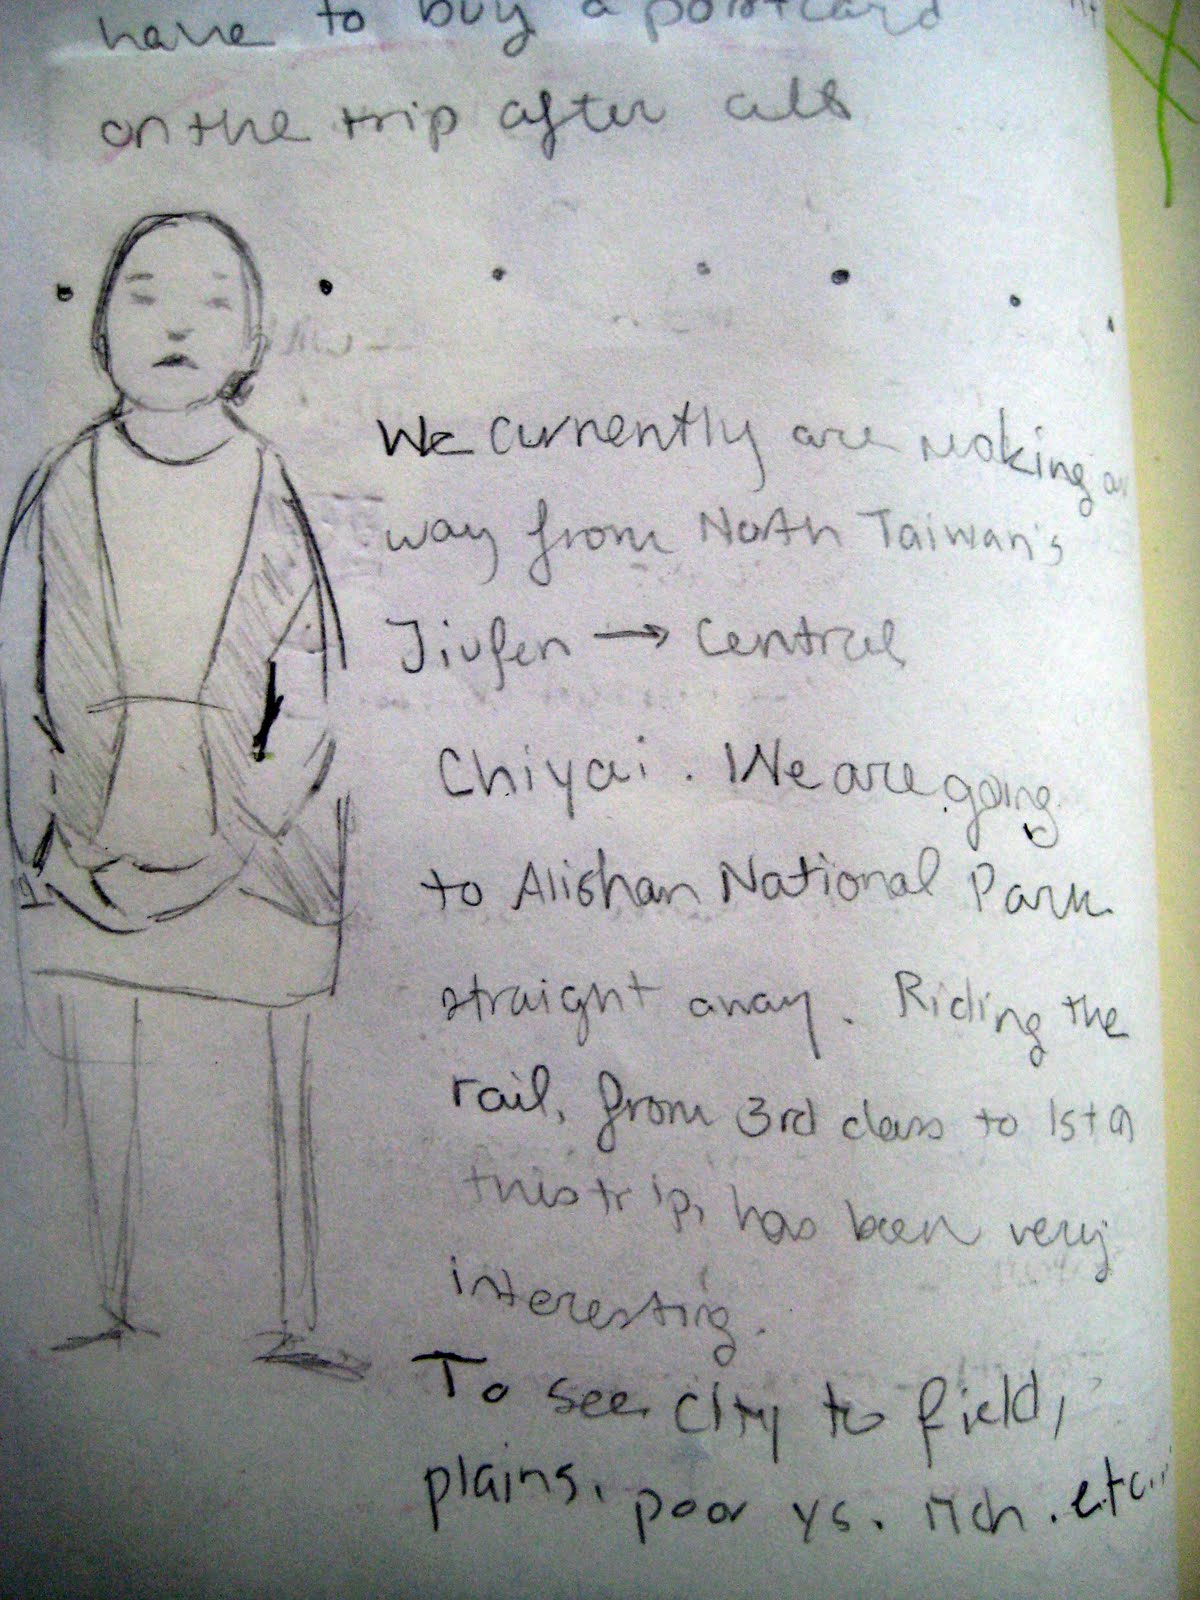 have to buy a postcard
on the trip after all
We currently are making
way from North Taiwan's
Jiufen → Central
Chiyai. We are going
to Alishan National Park
straight away. Riding the
rail, from 3rd class to 1st
this trip, has been very
interesting.
To see city to field,
plains, poor vs. rich. etc...